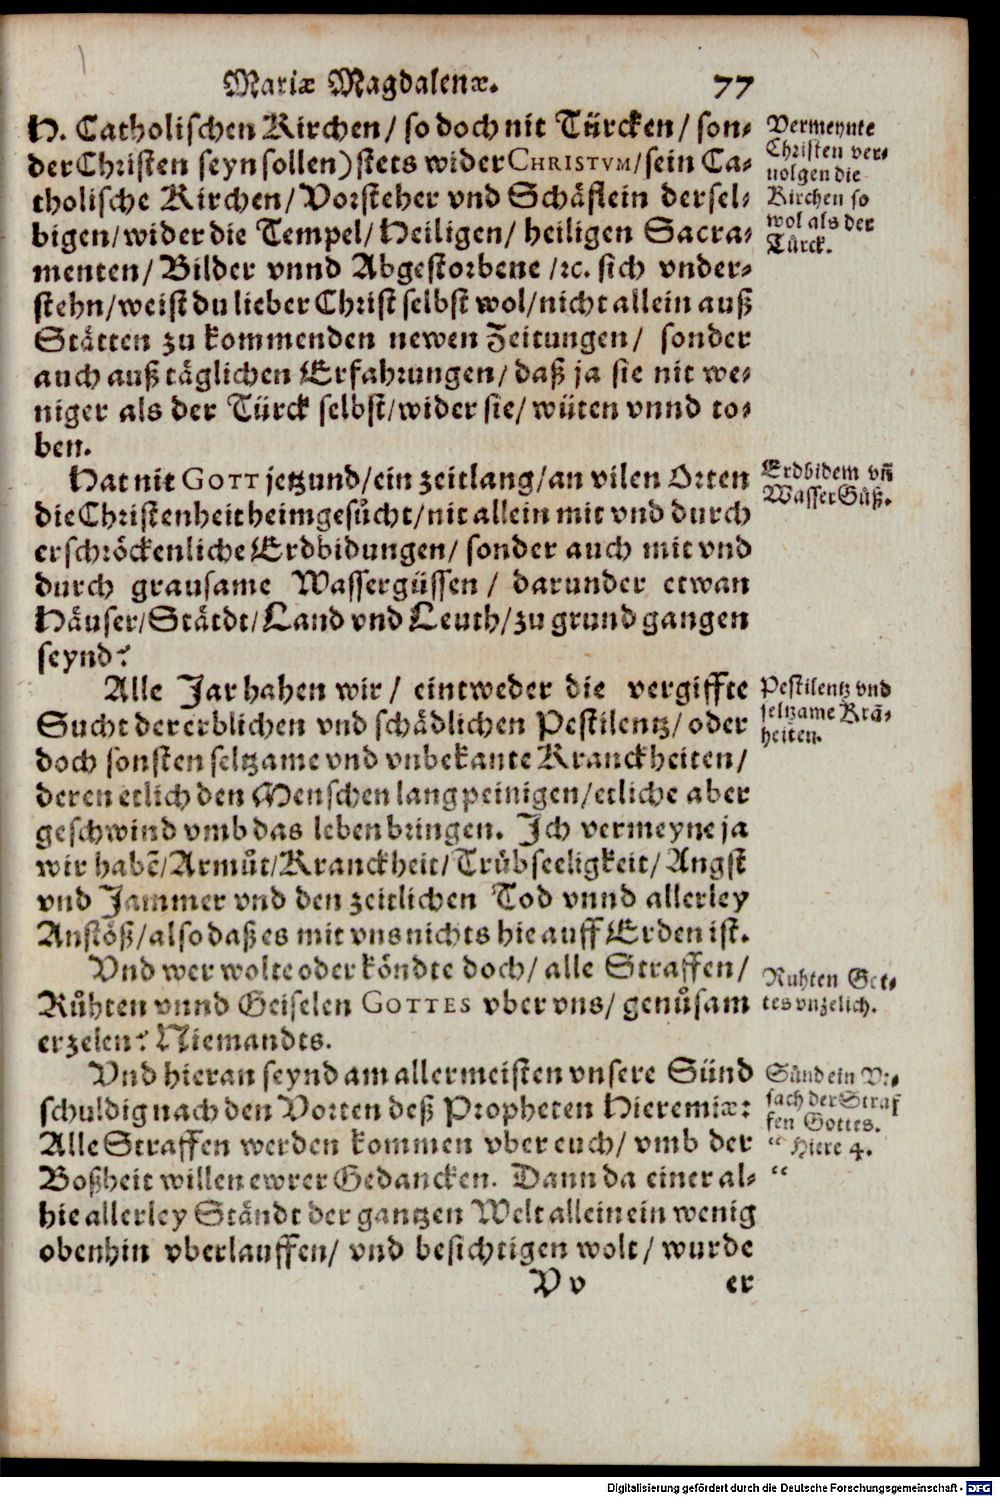 Mariæ Magdalenæ. 77
H. Catholischen Kirchen/ so doch nit Türcken/ son-
der Christen seyn sollen) stets wider CHRISTVM/ sein Ca-
tholische Kirchen/ Vorsteher vnd Schäflein dersel-
bigen/ wider die Tempel/ Heiligen/ heiligen Sacra-
menten/ Bilder vnnd Abgestorbene /ꝛc. sich vnder-
stehn/ weist du lieber Christ selbst wol/ nicht allein auß
Stätten zu kommenden newen Zeitungen/ sonder
auch auß täglichen Erfahrungen/ daß ja sie nit we-
niger als der Türck selbst/ wider sie/ wüten vnnd to-
ben.
Vermeynte
Christen ver-
uolgen die
Kirchen so
wol als der
Türck.
Hat nit GOTT jetzund/ ein zeitlang/ an vilen Orten
die Christenheit heimgesůcht/ nit allein mit vnd durch
erschröckenliche Erdbidungen/ sonder auch mit vnd
durch grausame Wassergüssen/ darunder etwan
Häuser/ Städt/ Land vnd Leuth/ zu grund gangen
seynd?
Erdbidem vñ
Wasser Güß.
Alle Jar hahen wir/ eintweder die vergiffte
Sucht der erblichen vnd schädlichen Pestilentz/ oder
doch sonsten seltzame vnd vnbekante Kranckheiten/
deren etlich den Menschen lang peinigen/ etliche aber
geschwind vmb das leben bringen. Ich vermeyne ja
wir habẽ/ Armůt/ Kranckheit/ Trübseeligkeit/ Angst
vnd Jammer vnd den zeitlichen Tod vnnd allerley
Anstöß/ also daß es mit vns nichts hie auff Erden ist.
Pestilentz vnd
seltzame Krã-
heiten.
Vnd wer wolte oder köndte doch/ alle Straffen/
Růhten vnnd Geiselen GOTTES vber vns/ genůsam
erzelen? Niemandts.
Ruhten Got-
tes vnzelich.
Vnd hieran seynd am allermeisten vnsere Sünd
schuldig nach den Vorten deß Propheten Hieremiæ:
Alle Straffen werden kommen vber euch/ vmb der
Boßheit willen ewrer Gedancken. Dann da einer al-
hie allerley Ständt der gantzen Welt allein ein wenig
obenhin vberlauffen/ vnd besichtigen wolt/ wurde
Sünd ein Vr-
sach der Straf
fen Gottes.
“ Hiere 4.
“
V v er
Digitalisierung gefördert durch die Deutsche Forschungsgemeinschaft - DFG